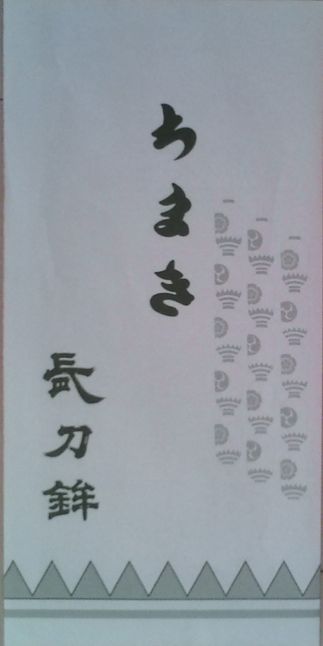 ちまき
長刀鉾